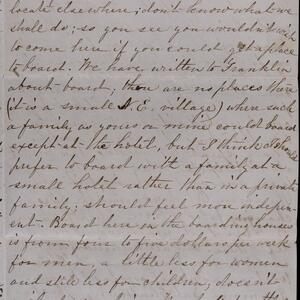 locate elsewhere; don't know what we
shall do; so you see you wouldn't wish
to come here if you could get a place
to board. We have written to Franklin
about board, there are no places there
(it is a small N.E. village) where such
a family as yours or mine could board
except at the hotel, but I think I should
prefer to board with a family at a
small hotel rather than in a private
family; should feel more indepen-
dent - Board here in the boarding houses
is from four to five dollars per week
for men, a little less for women
and still less for children, doesn't